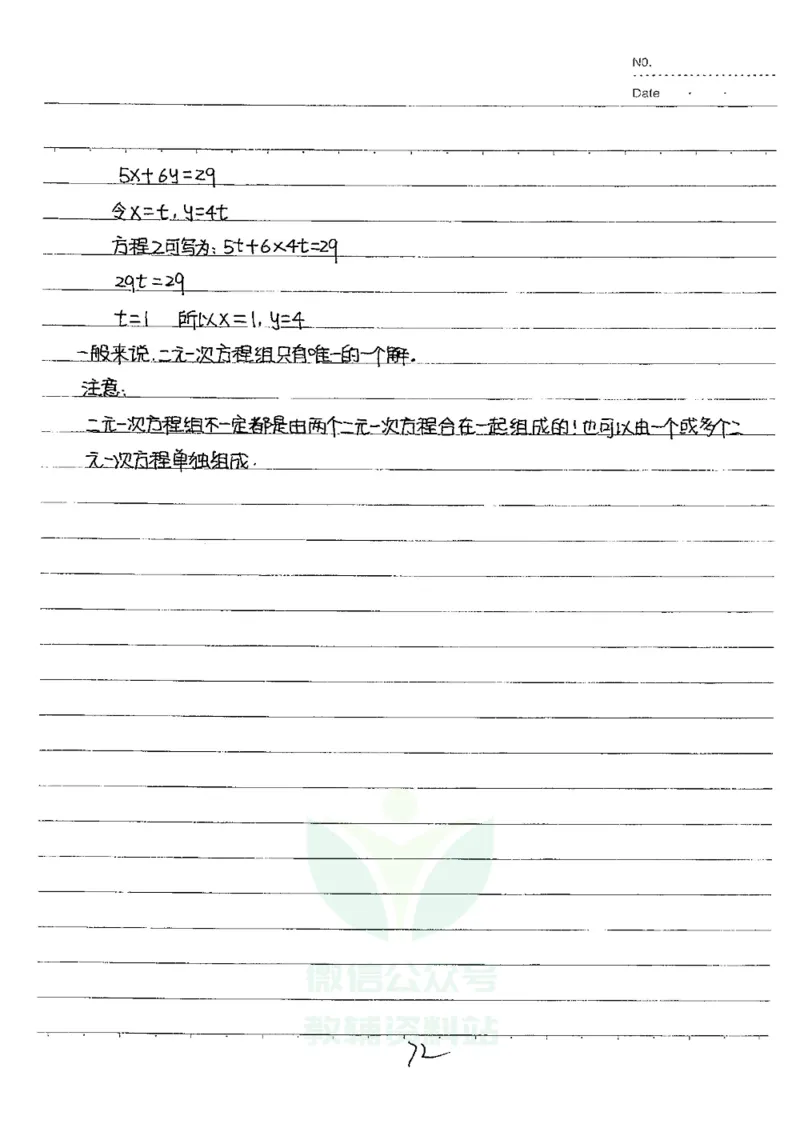 NO.
Date
5x+6y=29
令x=t,y=4t
方程2可写为:5t+6×4t=29
29t=29
t=1 所以x=1,y=4
一般来说,二元一次方程组只有唯一的一个解.
注意:
二元一次方程组不一定都是由两个二元一次方程合在一起组成的!也可以由一个或多个二
元一次方程单独组成.
微信公众号
教辅资料站
72